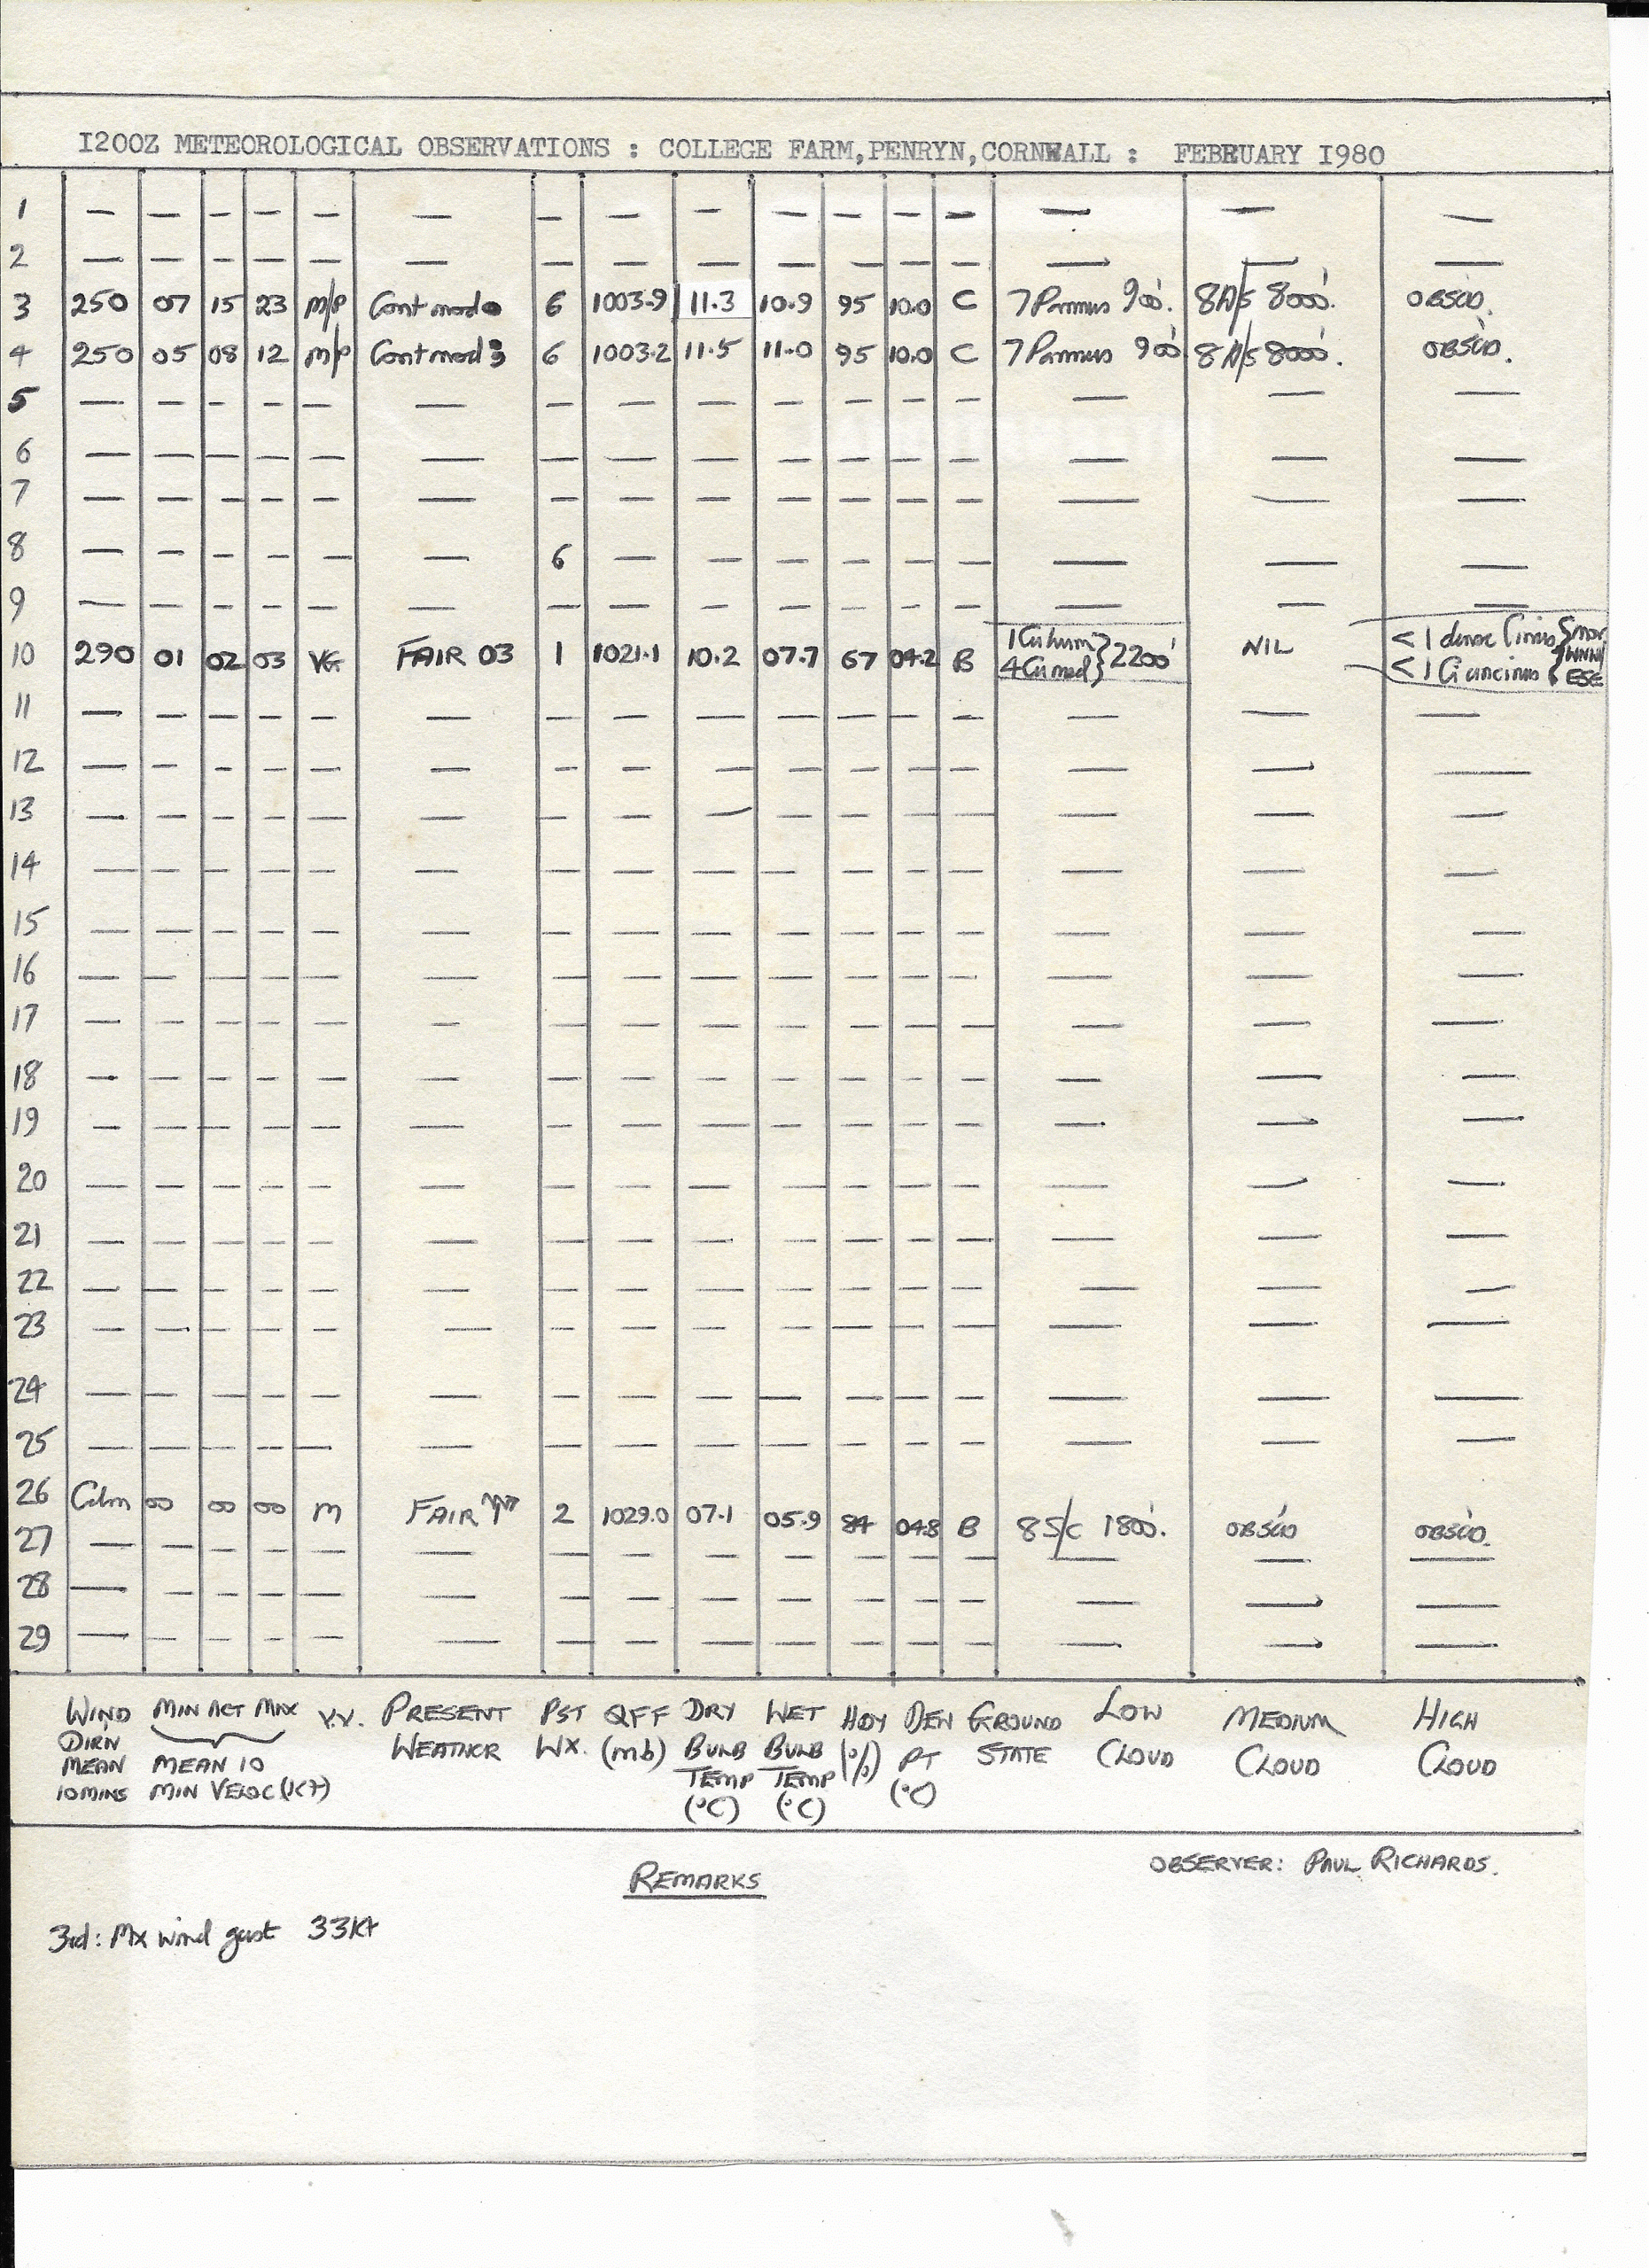 I200Z METEOROLOGICAL OBSERVATIONS : COLLEGE FARM,PENRYN,CORNWALL : FEBRUARY I980
1 — — — — — — — — — — — — — — — —
2 — — — — — — — — — — — — — — — —
3 250 07 15 23 m/p Cont mod 6 1003.9 11.3 10.9 95 10.0 C 7 Pannus 900'. 8A/s 8000'. OBSC'D.
4 250 05 08 12 m/p Cont mod 6 1003.2 11.5 11.0 95 10.0 C 7 Pannus 900' 8A/s 8000'. OBSC'D.
5 — — — — — — — — — — — — — — — —
6 — — — — — — — — — — — — — — — —
7 — — — — — — — — — — — — — — — —
8 — — — — — — 6 — — — — — — — — —
9 — — — — — — — — — — — — — — — —
10 290 01 02 03 VG FAIR 03 1 1021.1 10.2 07.7 67 04.2 B 1 Cu hum 4 Cu med } 2200' NIL < 1 dense Cirrus < 1 Ci uncinus WNW ESE
11 — — — — — — — — — — — — — — — —
12 — — — — — — — — — — — — — — — —
13 — — — — — — — — — — — — — — — —
14 — — — — — — — — — — — — — — — —
15 — — — — — — — — — — — — — — — —
16 — — — — — — — — — — — — — — — —
17 — — — — — — — — — — — — — — — —
18 — — — — — — — — — — — — — — — —
19 — — — — — — — — — — — — — — — —
20 — — — — — — — — — — — — — — — —
21 — — — — — — — — — — — — — — — —
22 — — — — — — — — — — — — — — — —
23 — — — — — — — — — — — — — — — —
24 — — — — — — — — — — — — — — — —
25 — — — — — — — — — — — — — — — —
26 Calm 00 00 00 m FAIR 2 1029.0 07.1 05.9 84 04.8 B 8 S/c 1800'. OBSC'D OBSC'D.
27 — — — — — — — — — — — — — — — —
28 — — — — — — — — — — — — — — — —
29 — — — — — — — — — — — — — — — —
WIND MIN ACT MAX V.V. PRESENT PST QFF DRY WET HDY DEW GROUND LOW MEDIUM HIGH
DIRN WEATHER WX. (mb) BULB BULB (%) PT STATE CLOUD CLOUD CLOUD
MEAN MEAN 10 TEMP TEMP (°C)
10 MINS MIN VELOC (KT) (°C) (°C)
REMARKS
OBSERVER: PAUL RICHARDS.
3rd: Mx wind gust 33Kt